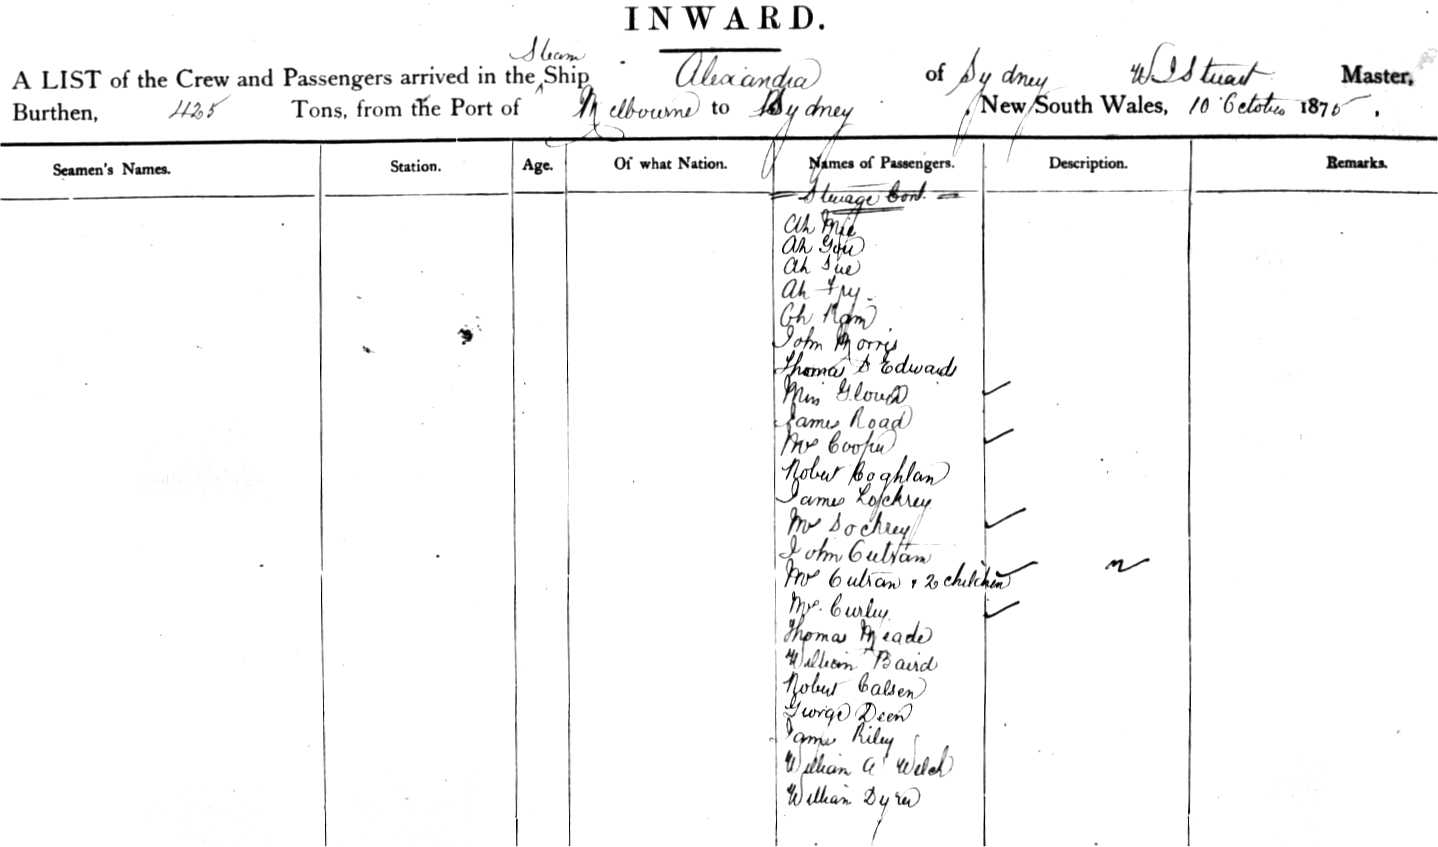 INWARD.
Steam
A LIST of the Crew and Passengers arrived in the Ship Alexandra of Sydney W J Stuart Master,
Burthen, 425 Tons, from the Port of Melbourne to Sydney, New South Wales, 10 October 1875.
Seamen's Names. Station. Age. Of what Nation. Names of Passengers. Description. Remarks.
Steerage Cont.
Ah
Ah
Ah Sue
Ah
John Morris
Thomas Edwards
Miss
James Road
Mrs Cooper
Robert Coghlan
James Lockrey
Mrs Lockrey
John Outram
Mrs Outram & 2 children
Mrs. Curley
Thomas Meade
William Baird
Robert Calsen
George Deen
James Riley
William A Welch
William Dyer